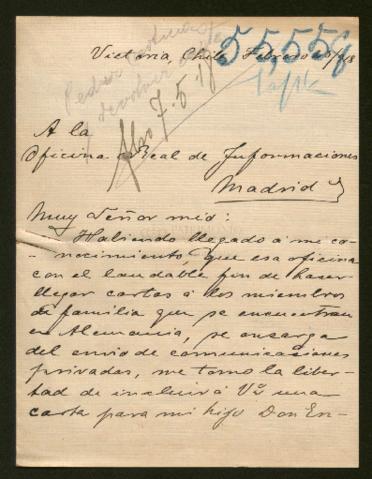 Victoria, Chile Febrero
55,558
7.5.18
A la
Oficina Real de Informaciones
Madrid
Muy Señor mio:
Habiendo llegado á me co-
- nocimiento, que esa oficina
con el laudable fin de hacer
llegar cartas á los miembros
de familia que se encuentran
en Alemania, se encarga
del envio de comunicaciones
privadas, me tomo la liber-
tad de incluir á Vd una
carta para mi hijo Don En-